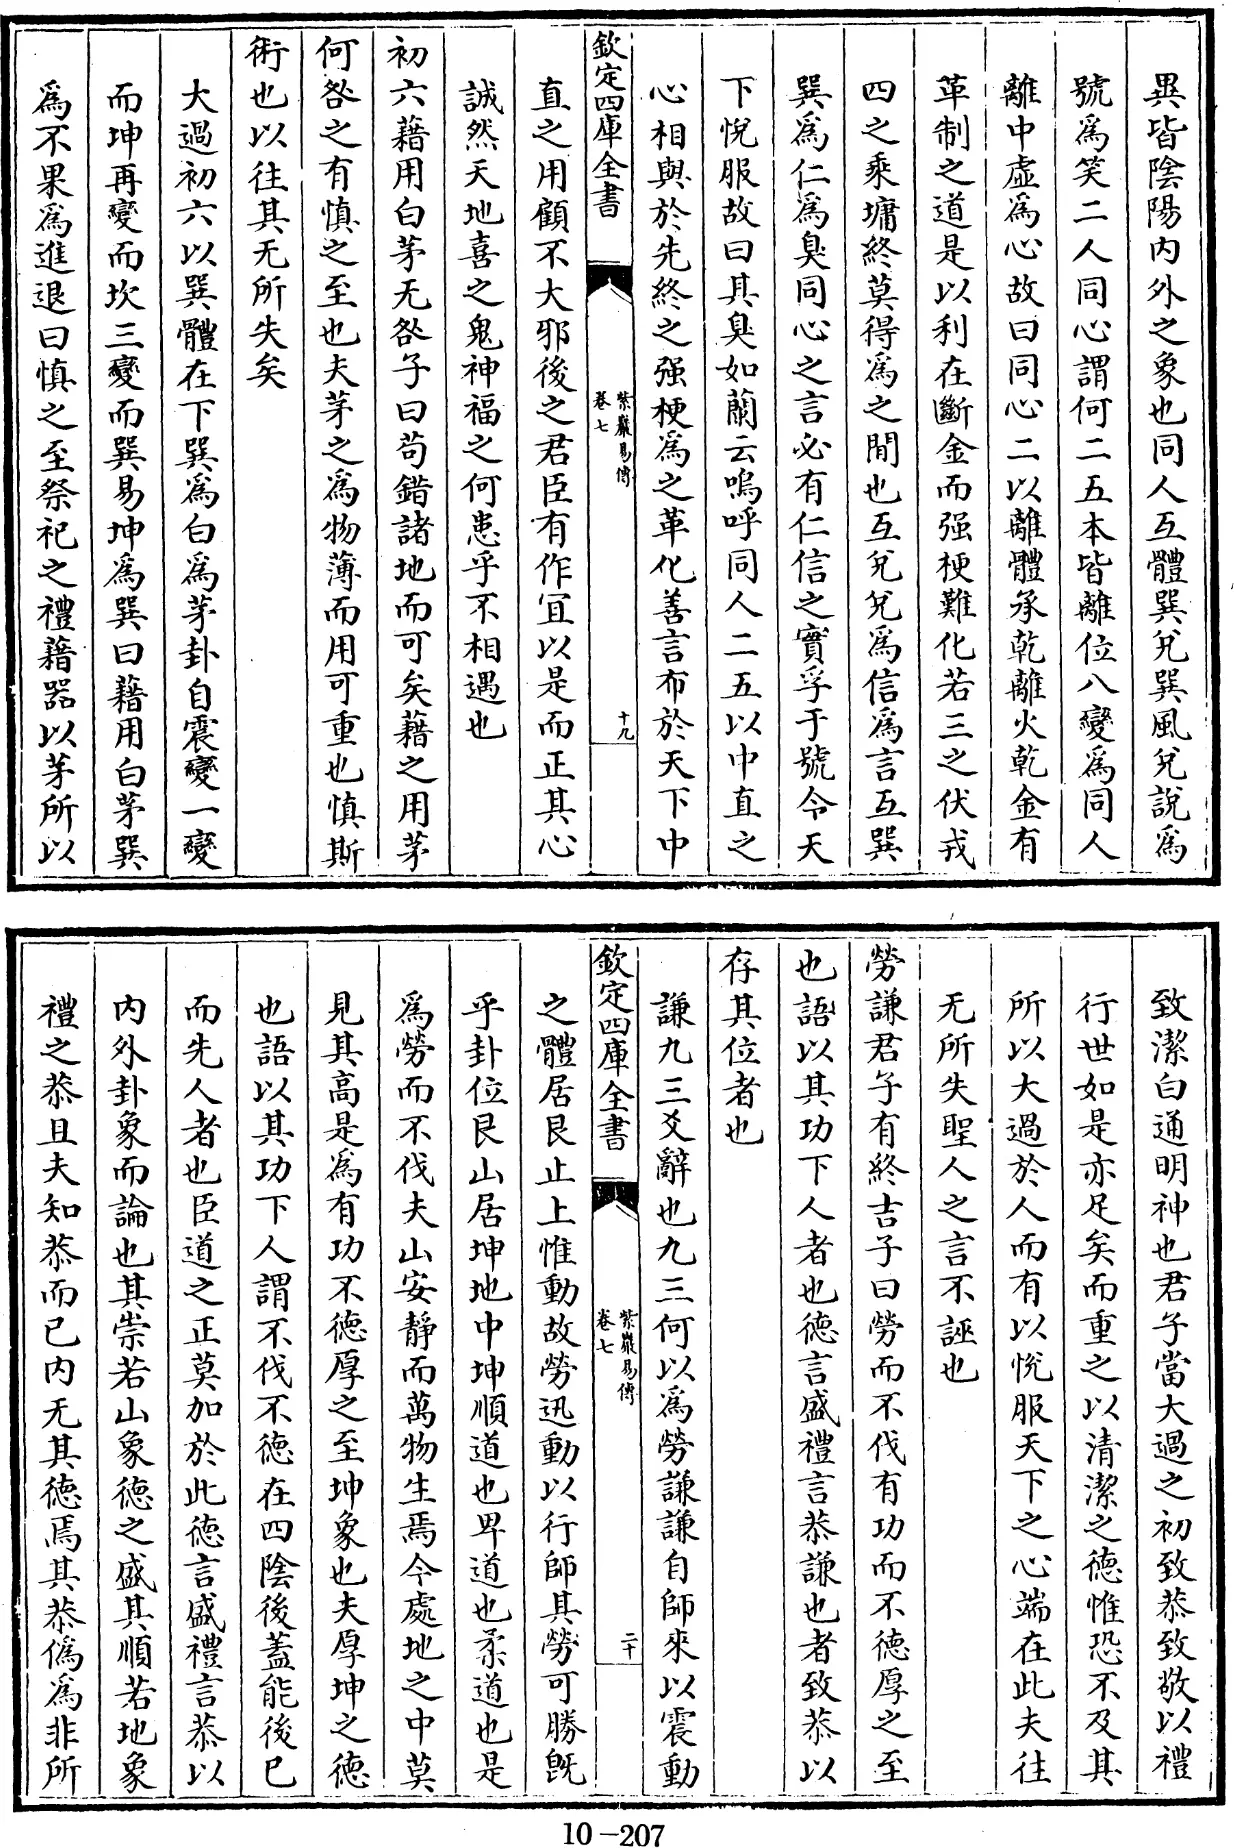 異皆陰陽内外之象也同人互體巽兌巽風兌說為
號為笑二人同心謂何二五本皆離位八變為同人
離中虚為心故曰同心二以離體承乾離火乾金有
革制之道是以利在斷金而强梗難化若三之伏戎
四之乘墉終莫得為之間也互兌兌為信為言互巽
巽為仁為臭同心之言必有仁信之實孚于號令天
下悅服故曰其臭如蘭云嗚呼同人二五以中直之
心相與於先終之强梗為之革化善言布於天下中
欽定四庫全書
紫巖易傳
卷七
十九
直之用顧不大邪後之君臣有作宜以是而正其心
誠然天地喜之鬼神福之何患乎不相遇也
初六藉用白茅无咎子曰苟錯諸地而可矣藉之用茅
何咎之有慎之至也夫茅之為物薄而用可重也慎斯
術也以往其无所失矣
大過初六以巽體在下巽為白為茅卦自震變一變
而坤再變而坎三變而巽易坤為巽曰藉用白茅巽
為不果為進退曰慎之至祭祀之禮藉器以茅所以
致潔白通明神也君子當大過之初致恭致敬以禮
行世如是亦足矣而重之以清潔之德惟恐不及其
所以大過於人而有以悅服天下之心端在此夫往
无所失聖人之言不誣也
勞謙君子有終吉子曰勞而不伐有功而不德厚之至
也語以其功下人者也德言盛禮言恭謙也者致恭以
存其位者也
謙九三爻辭也九三何以為勞謙謙自師來以震動
欽定四庫全書
紫巖易傳
卷七
二十
之體居艮止上惟動故勞迅動以行師其勞可勝旣
乎卦位艮山居坤地中坤順道也卑道也柔道也是
為勞而不伐夫山安靜而萬物生焉今處地之中莫
見其高是為有功不德厚之至坤象也夫厚坤之德
也語以其功下人謂不伐不德在四陰後蓋能後已
而先人者也臣道之正莫加於此德言盛禮言恭以
内外卦象而論也其崇若山象德之盛其順若地象
禮之恭且夫知恭而已内无其德焉其恭偽為非所
10-207